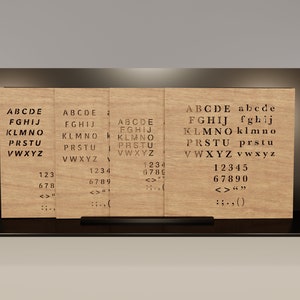 ABCDE
FGHIJ
KLMNO
PRSTU
VWXYZ
ABCDE
FGHIJ
KLMNO
PRSTU
VWXYZ
12345
67890
<>“”
:;.,()
ABCDE
FGHIJ
KLMNO
PRSTU
VWXYZ
ABCDE abcde
FGHIJ fghij
KLMNO klmno
PRSTU prstu
VWXYZ vwxyz
12345
67890
<>“”
:;.,()